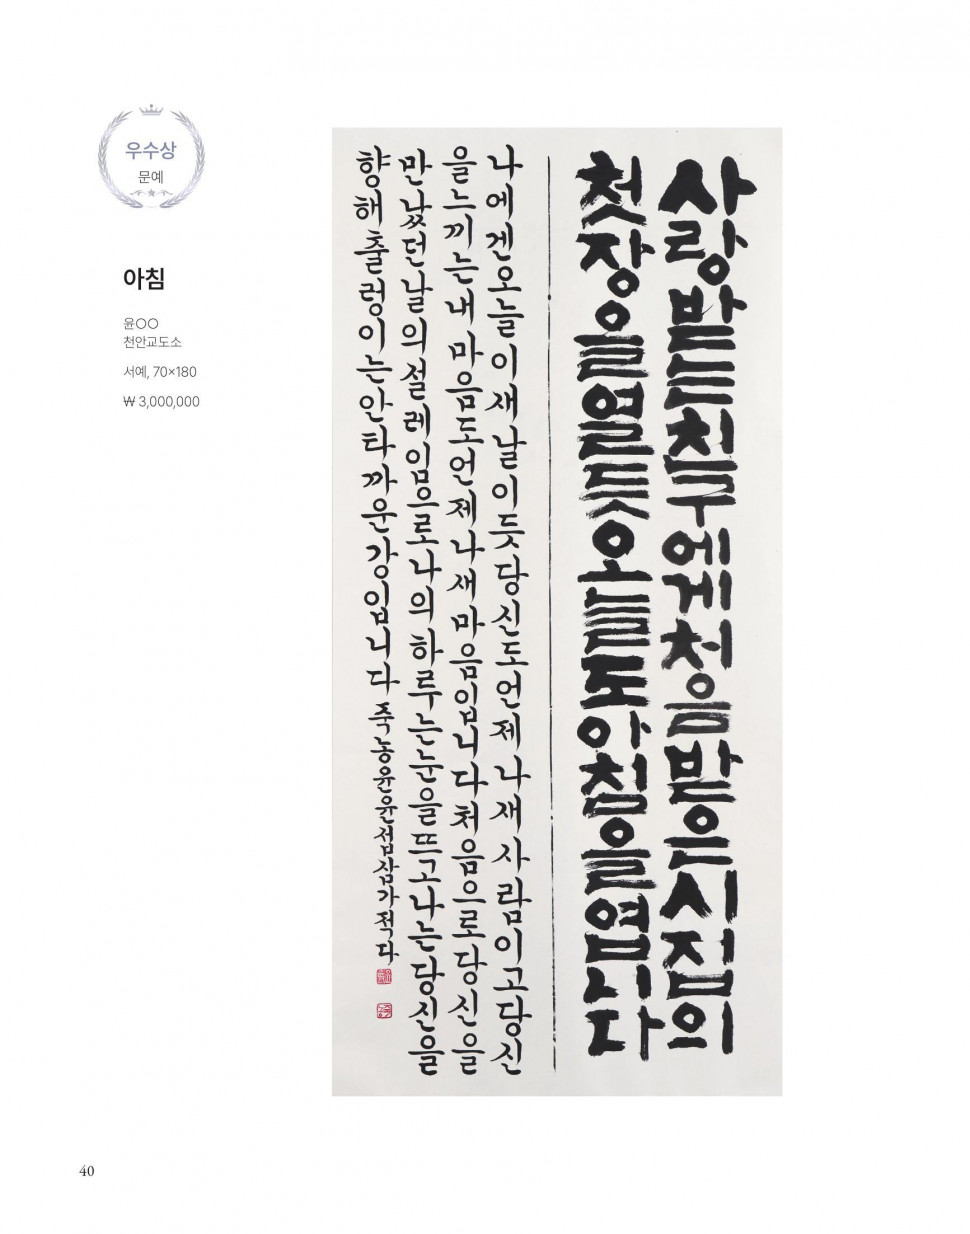 우수상
문예
아침
윤○○
천안교도소
서예, 70×180
₩ 3,000,000
사랑받는친구에게처음받은시집의
첫장을열듯오늘도아침을엽니다
나에겐오늘이새날이듯당신도언제나새사람이고당신
을느끼는내마음도언제나새마음입니다처음으로당신을
만났던날의설레임으로나의하루는눈을뜨고나는당신을
향해출렁이는안타까운강입니다 죽농윤윤섭삼가적다
40